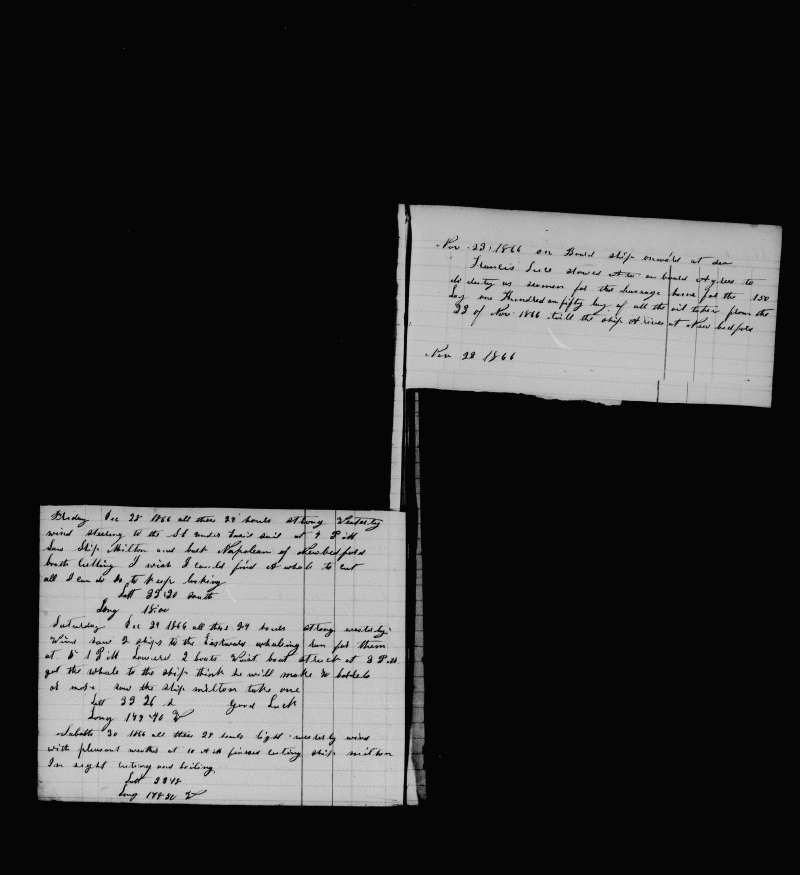 Nov. 23. 1866 on Board ship onward at sea
Francis Luce stowed away on board Agrees to
do duty as seamen for the passage home for the 150
Lay one Hundred an fifty lay. of all the oil taken from the
23 of Nov. 1866 till the ship Arives at New bedford
Nov 28 1866
Friday Dec 28 1866 all these 24 hours strong Westerly
wind steering to the under sail at P M
Saw Ship Milton and bark Napoleon of Newbedford
boath cutting I wish I could find A whale to cut
all I can do is to keep looking
Latt 33:20 south
Long
Saturday Dec 29 1866 all these 24 hours strong westerly
Wind saw 2 ships to the Eastward whaleing run for them
at 1 P M Lowered 2 boats Waist boat struck at 3 P M
got the whale to the ship think he will make 70 barrels
or more saw the ship milton take one
Latt 33 26 S Good Luck
Long 149.40 W
Sabath 30 1866 all these 24 hours light westerly wind
with pleasant weather at 10 A M finised cutting ship milton
In sight cuting and boiling
Latt 33 48
Long 148 30 W